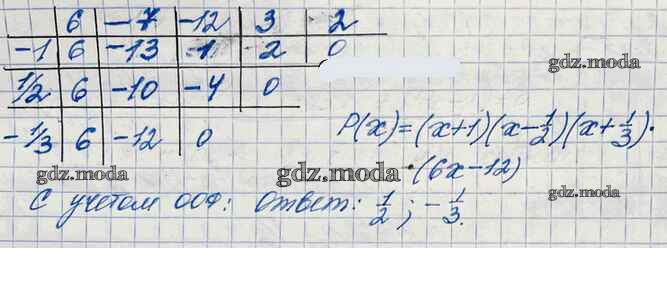 6 -7 -12 3 2
-1 6 -13 1 2 0
gdz.moda
1/2 6 -10 -4 0
gdz.moda
-1/3 6 -12 0
P(x)=(x+1)(x-1/2)(x+1/3)·
gdz.moda
·(6x-12)
gdz.moda
gdz.moda
gdz.moda
С учетом ООФ: Ответ: 1/2 ; -1/3.
gdz.moda